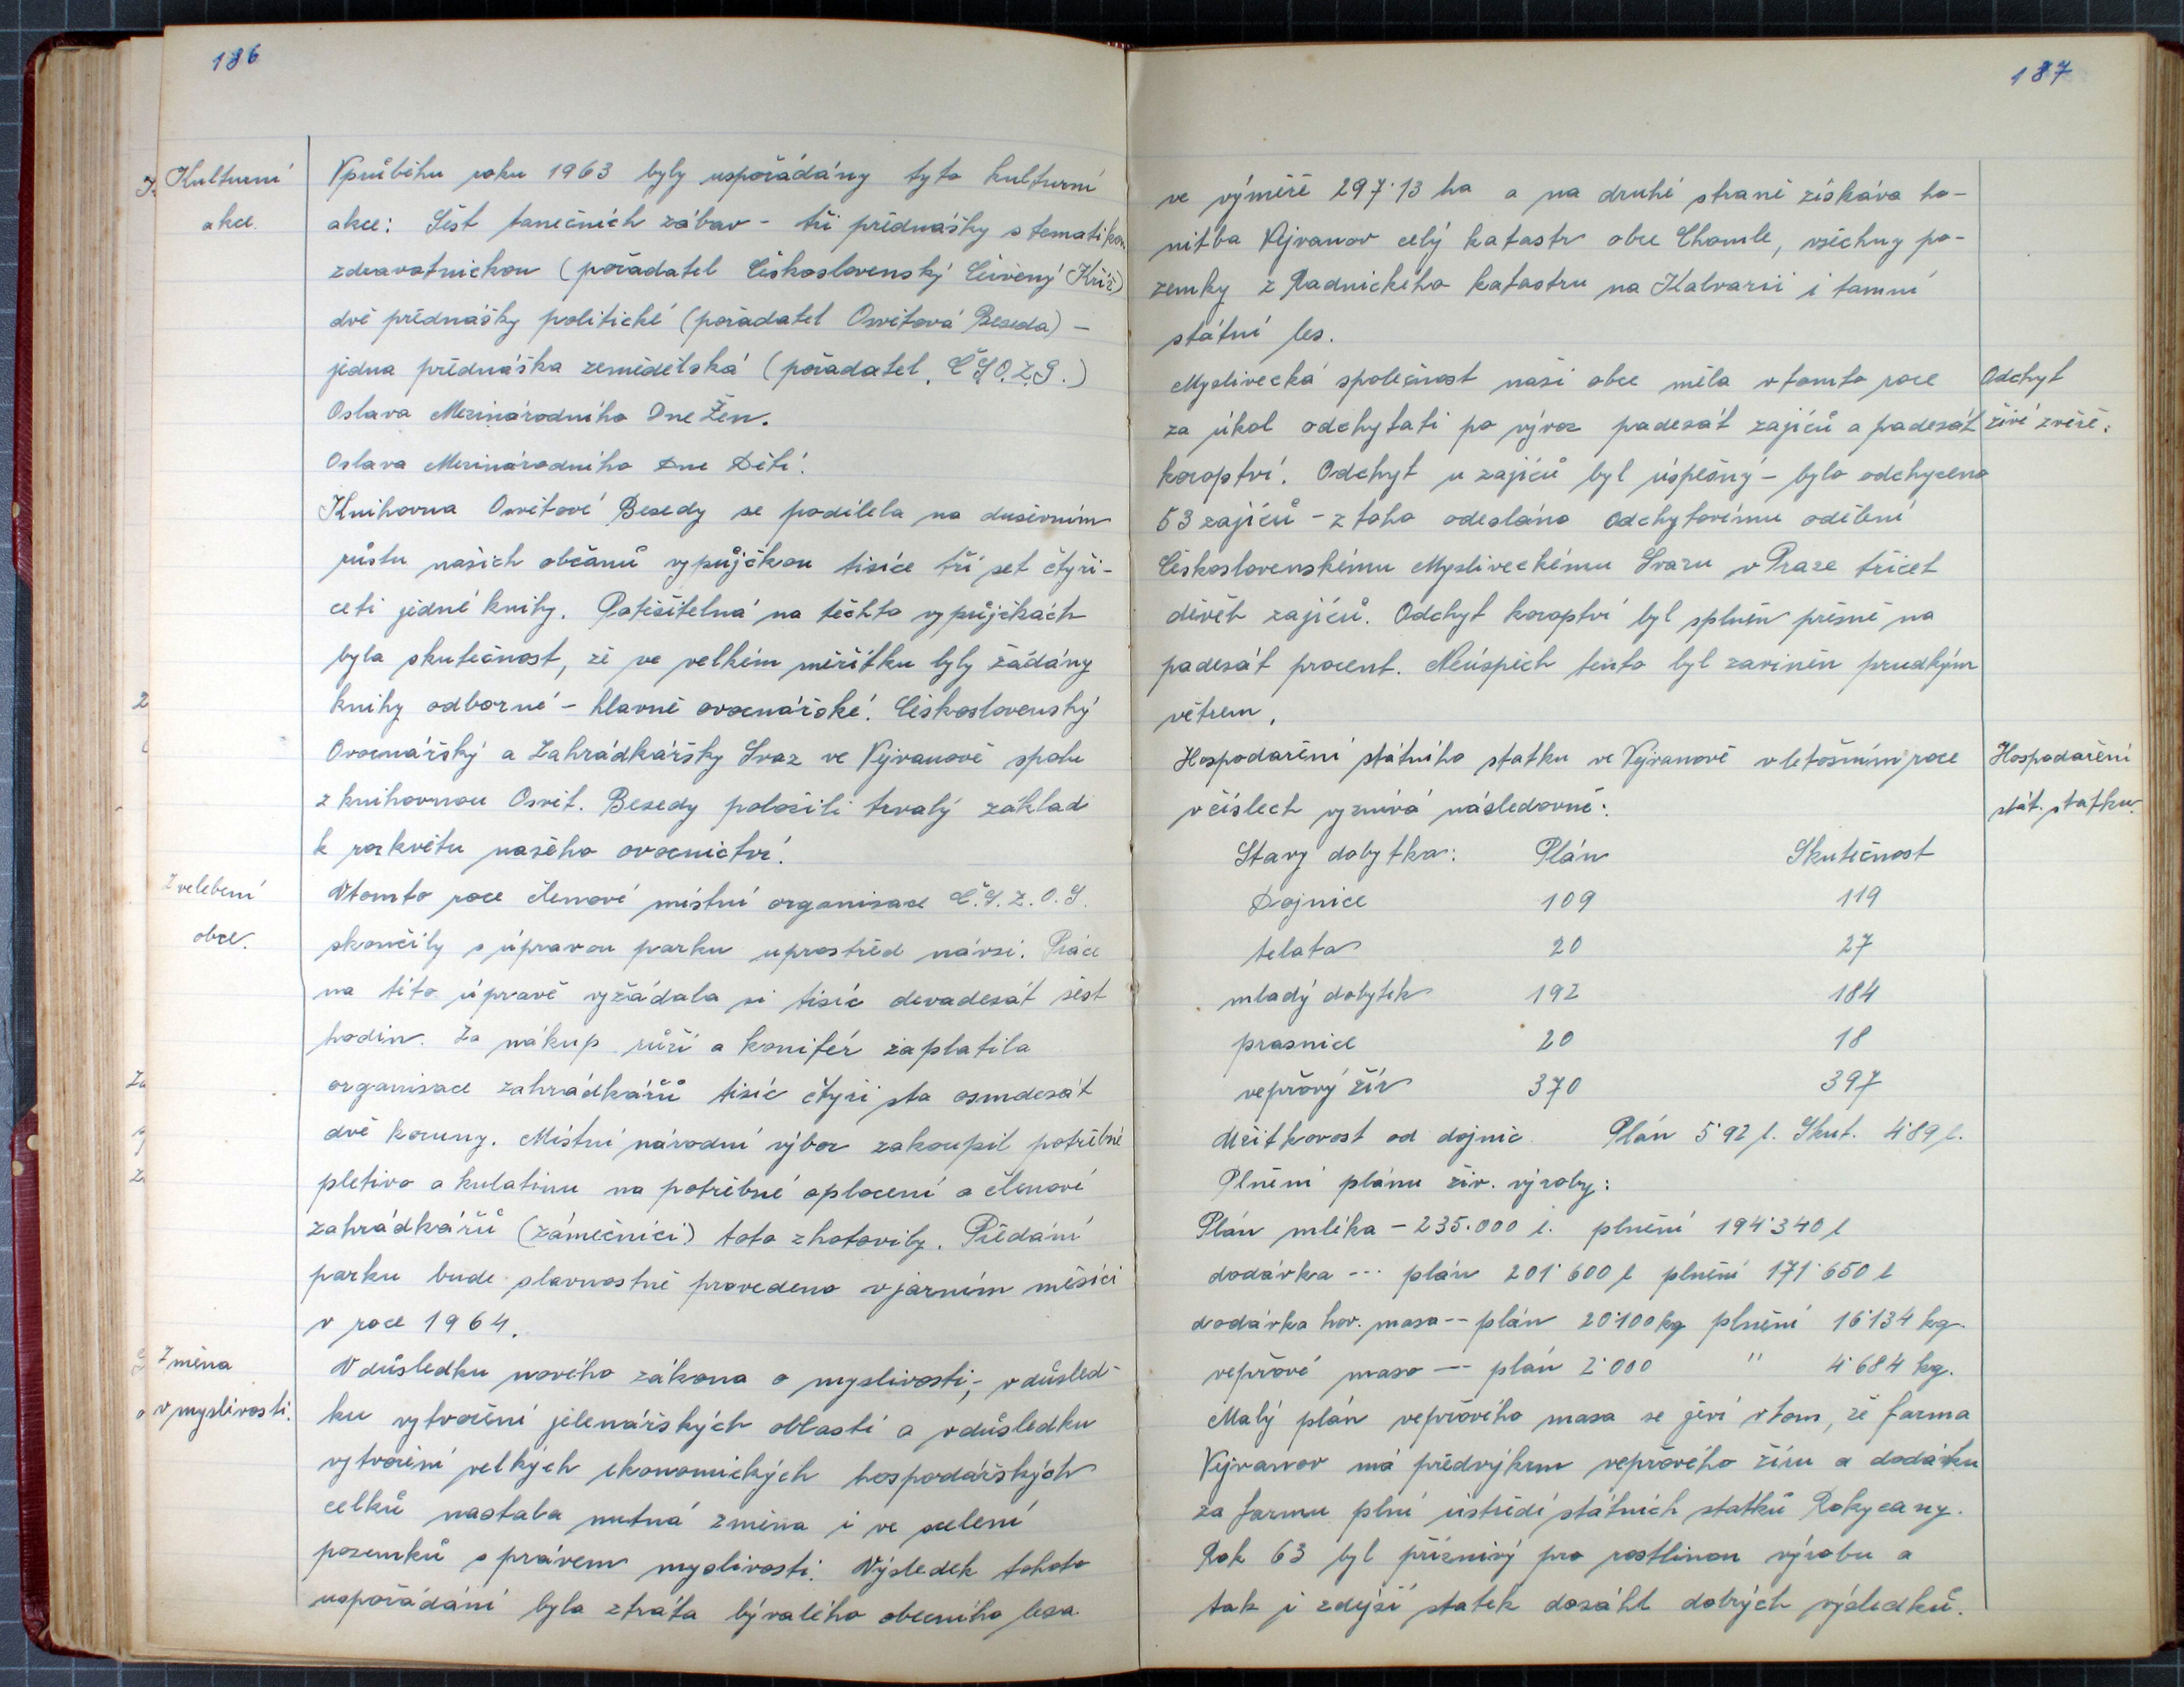 186
Kulturní
akce.
Vprůběhu roku 1963 byly uspořádány tyto kulturní
akce: Šest tanečních zábav - tři přednášky s tematikou
zdravotnickou (pořadatel Československý Červený Kříž)
dvě přednášky politické (pořadatel Osvětová Beseda) -
jedna přednáška zemědělská (pořadatel, Č.S.O.Z.S.)
Oslava Mezinárodního Dne Žen.
Oslava Mezinárodního Dne Dětí.
Knihovna Osvětové Besedy se podílela na duševním
růstu našich občanů vypůjčkou tisíce tři set čtyři-
ceti jedné knihy. Potěšitelná na těchto vypůjčkách
byla skutečnost, že ve velkém měřítku byly žádány
knihy odborné - hlavně ovocnářské. Československý
Ovocnářský a Zahrádkářský Svaz ve Vejvanově spolu
z knihovnou Osvět. Besedy položili trvalý základ
k rozkvětu našeho ovocnictví.
Zvelebení
obce.
Vtomto roce členové místní organisace Č.S.Z.O.S.
skončily s úpravou parku uprostřed návsi. Práce
na této úpravě vyžádala si tisíc devadesát šest
hodin. Za nákup růží a konifér zaplatila
organisace zahrádkářů tisíc čtyři sta osmdesát
dvě koruny. Místní národní výbor zakoupil potřebné
pletivo a kulatinu na potřebné oplocení a členové
zahrádkářů (zámečníci) toto zhotovily. Předání
parku bude slavnostně provedeno vjarním měsíci
v roce 1964.
Změna
v myslivosti.
Vdůsledku nového zákona o myslivosti, - vdůsled-
ku vytvoření jelenářských oblastí a vdůsledku
vytvoření velkých ekonomických hospodářských
celků nastala nutná změna i ve scelení
pozemků s právem myslivosti. Výsledek tohoto
uspořádání byla ztráta bývalého obecního lesa
187
ve výměře 297·13 ha a na druhé straně získává ho-
nitba Vejvanov celý katastr obce Chomle, všechny po-
zemky z Radnického katastru na Kalvarii i tamní
státní les.
Myslivecká společnost naší obce měla vtomto roce
Odchyt
za úkol odchytati po vývoz padesát zajíců a padesát
živé zvěře.
koroptví. Odchyt u zajíců byl úspěšný - bylo odchyceno
53 zajíců - z toho odesláno Odchytovému oddělení
Československému Mysliveckému Svazu v Praze třicet
devět zajíců. Odchyt koroptví byl splněn přesně na
padesát procent. Neúspěch tento byl zaviněn prudkým
větrem.
Hospodaření státního statku ve Vejvanově vletošním roce
Hospodaření
stát. statku.
včíslech vyznívá následovně:
Stavy dobytka: Plán Skutečnost
Dojnice 109 119
telata 20 27
mladý dobytek 192 184
prasnice 20 18
vepřový žír 370 397
Užitkovost od dojnic Plán 5·92 l. Skut. 4·89 l.
Plnění plánu živ. výroby:
Plán mléka - 235.000 l. plnění 194·340 l
dodávka --- plán 201·600 l plnění 171·650 l
dodávka hov. masa -- plán 20·100 kg plnění 16·134 kg.
vepřové maso --- plán 2·000 " 4·684 kg.
Malý plán vepřového masa se jeví vtom, že farma
Vejvanov má předvýkrm vepřového žíru a dodávku
za farmu plní ústředí státních statků Rokycany.
Rok 63 byl příznivý pro rostlinou výrobu a
tak i zdejší statek dosáhl dobrých výsledků.